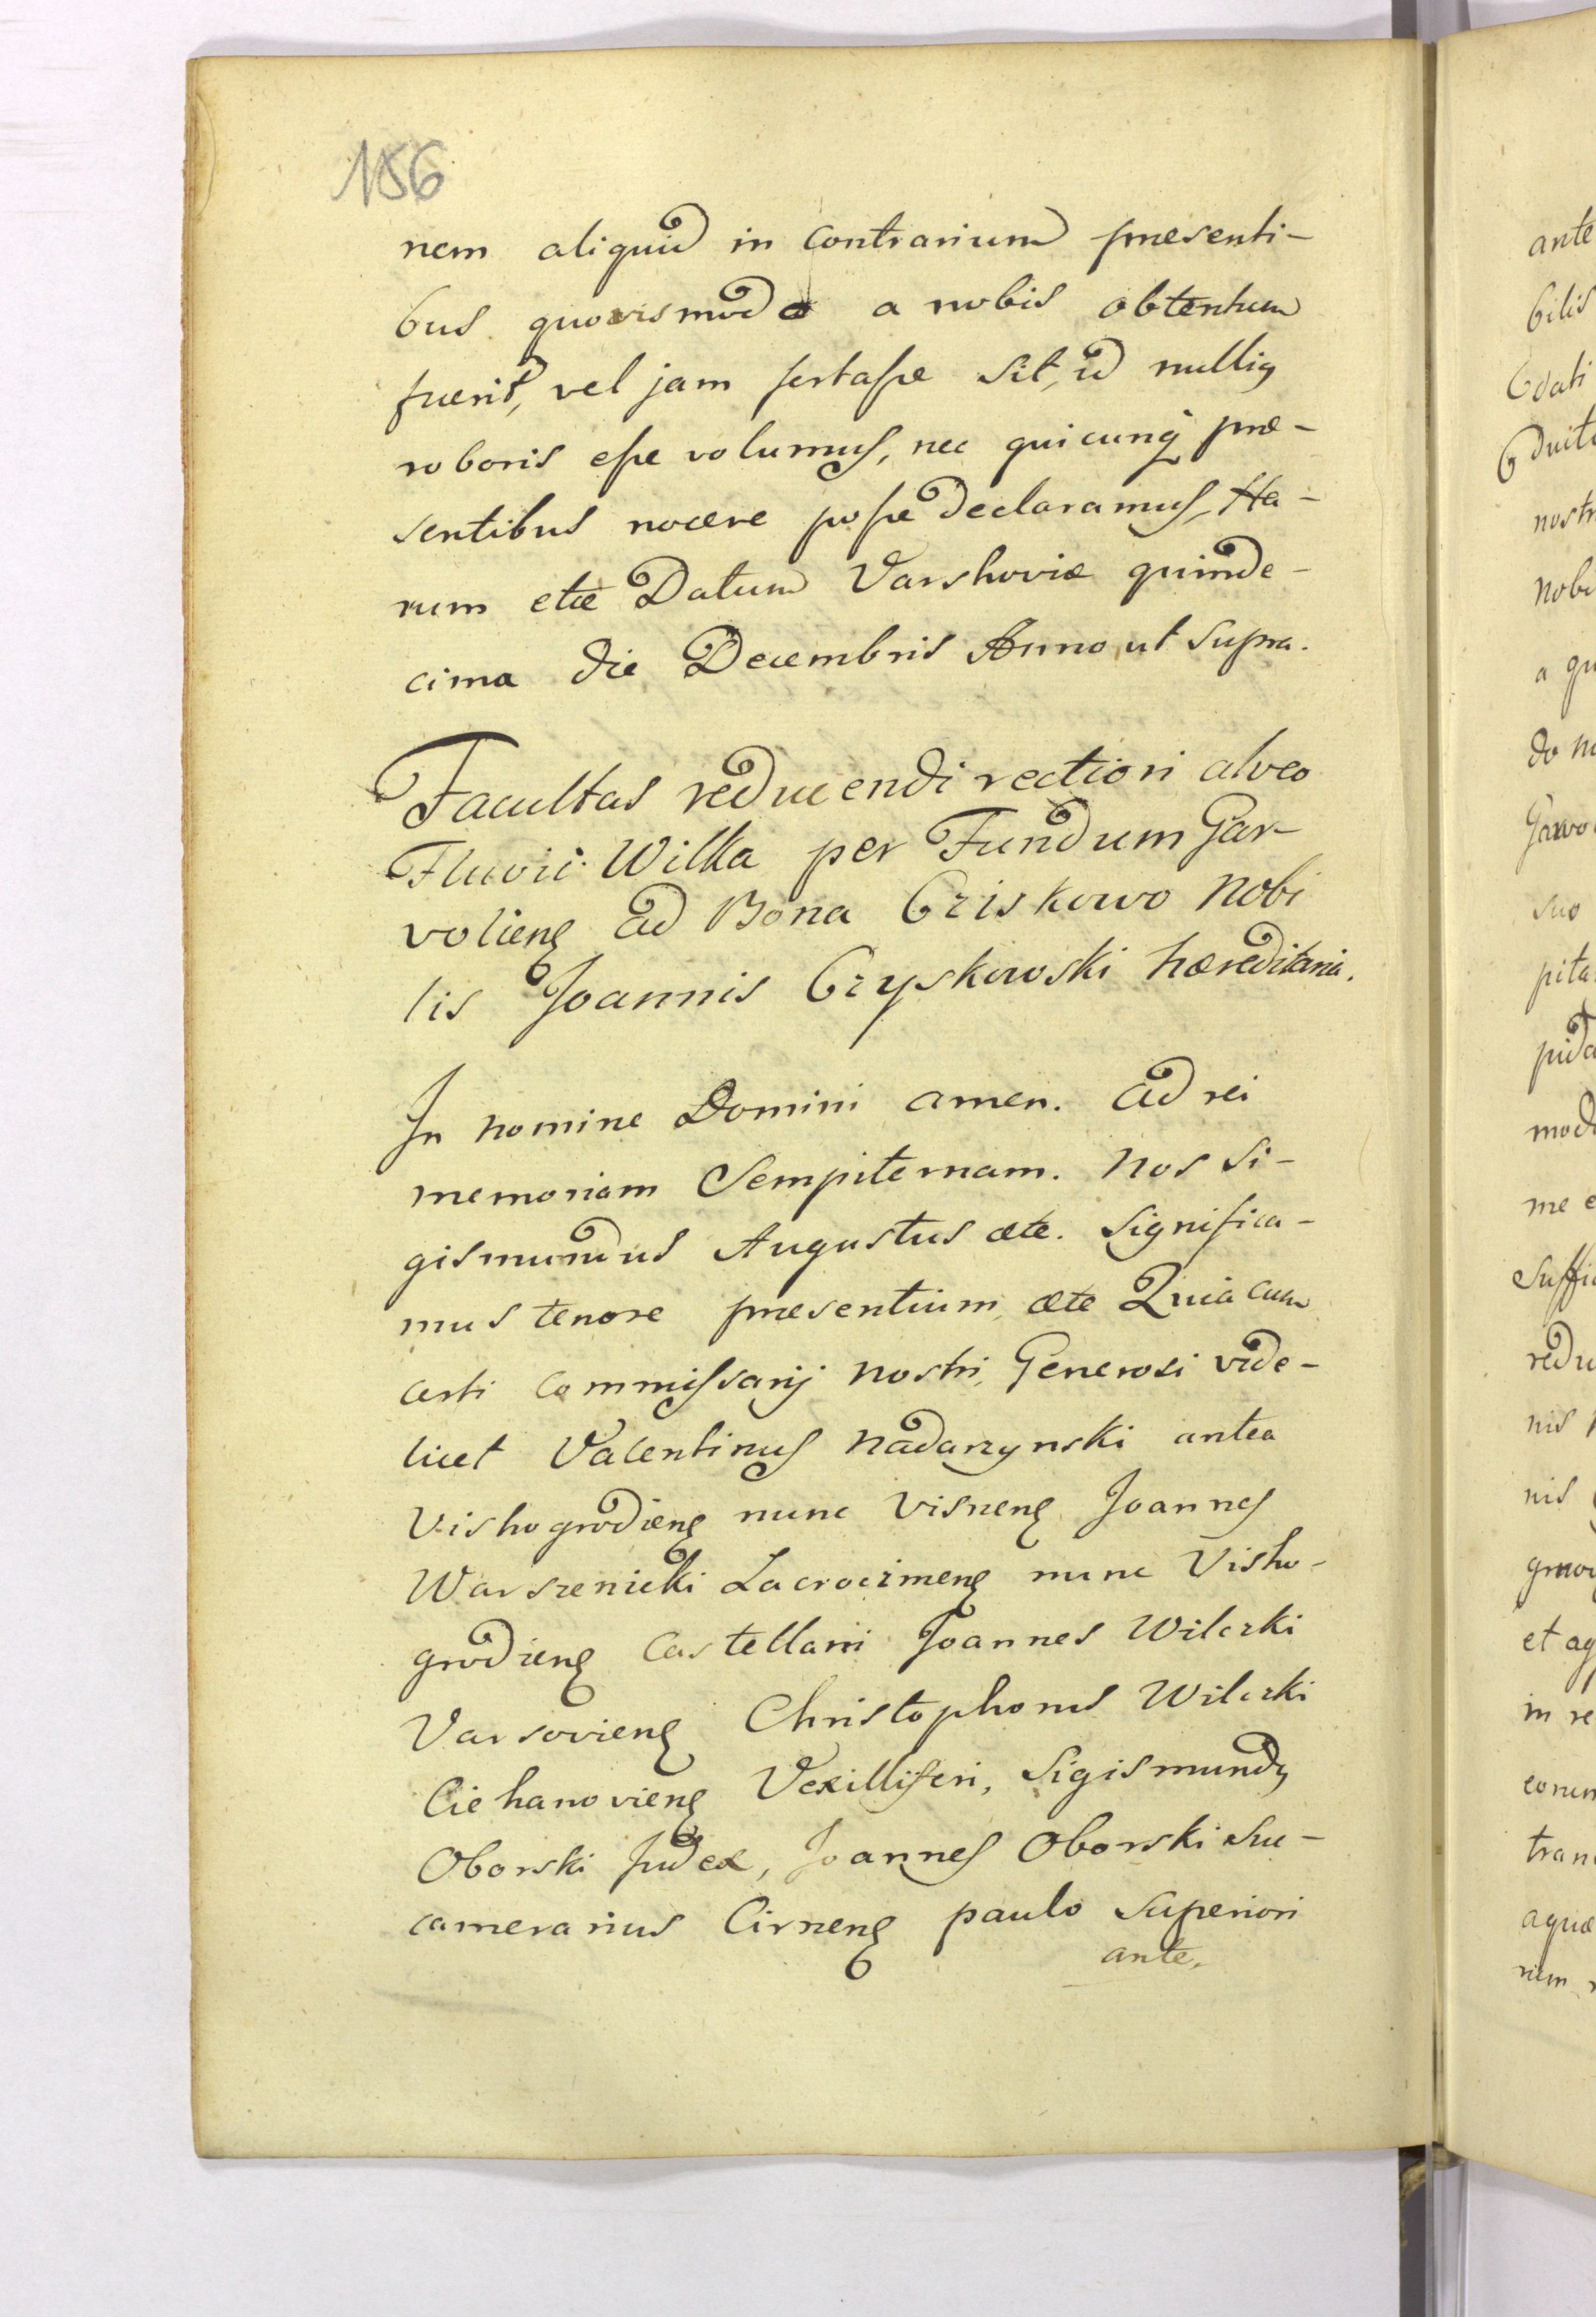 186
nem aliquid in Contrarium præsenti-
bus quovismodo a nobis obtentum
fuerit, vel jam fortaſse sit, id nulliꝰ
roboris eſse volumus, nec quicunq præ-
sentibus nocere poſse declaramus, Ha-
rum etæ Datum Varshoviæ quinde-
cima die Decembris Anno ut supra.
Facultas reducendi rectiori alveo
Fluvii Wilka per Fundum Gar-
voliens ad Bona Cziskowo Nobi
lis Joannis Czyskowski hæreditaria.
In nomine Domini amen. Ad rei
memoriam Sempiternam. Nos Si-
gismundus Augustus ætc. Significa-
mus tenore præsentium ætc Quia cum
certi Commiſsarij nostri, Generosi vide-
licet Valentinus Nadarzynski antea
Vishogrodiens nunc Visnens Joannes
Warszenicki Zacrocimens nunc Visho-
grodiens Castellani Joannes Wilczki
Varsoviens Christophorus Wilczki
Ciehanoviens Vexilliferi, Sigismundꝰ
Oborski Judex, Joannes Oborski suc-
camerarius Cirnens paulo superiori
ante.
ante
bilis
dati
nostr
nobi
a qu
do n
Garvo
suo
pita
pida
modo
me e
suffic
redu
nis
nis
et aq
in re
eorum
tran
aquæ